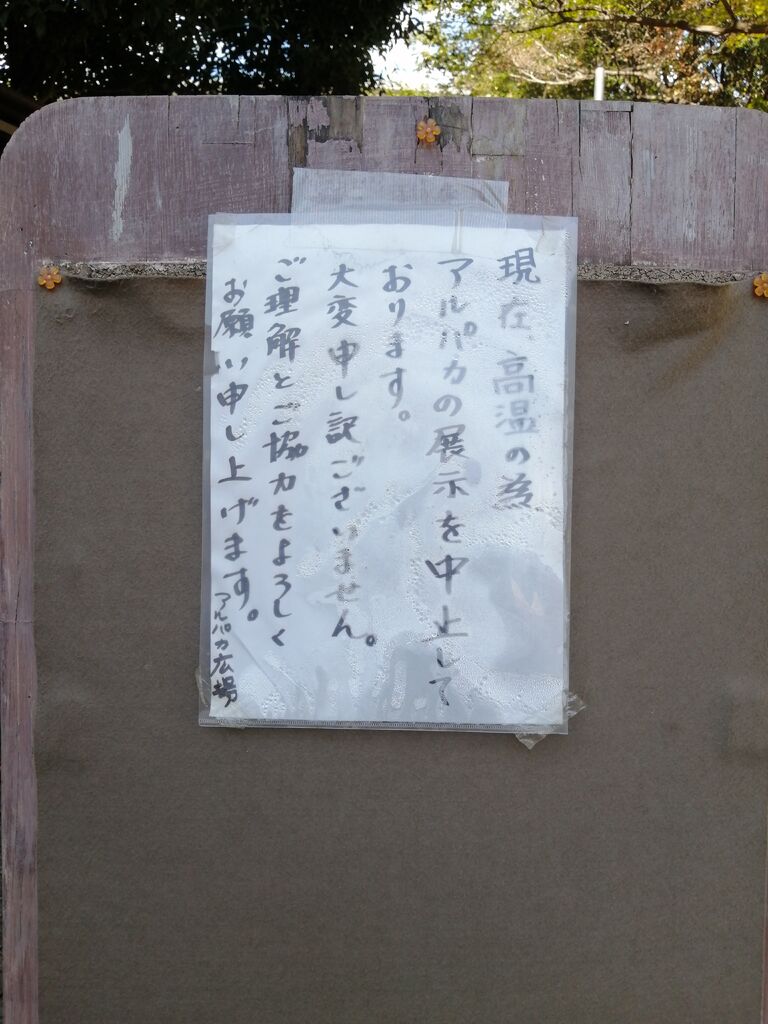 現在、高温の為
アルパカの展示を中止して
おります。
大変申し訳ございません。
ご理解とご協力をよろしく
お願い申し上げます。
アルパカ広場